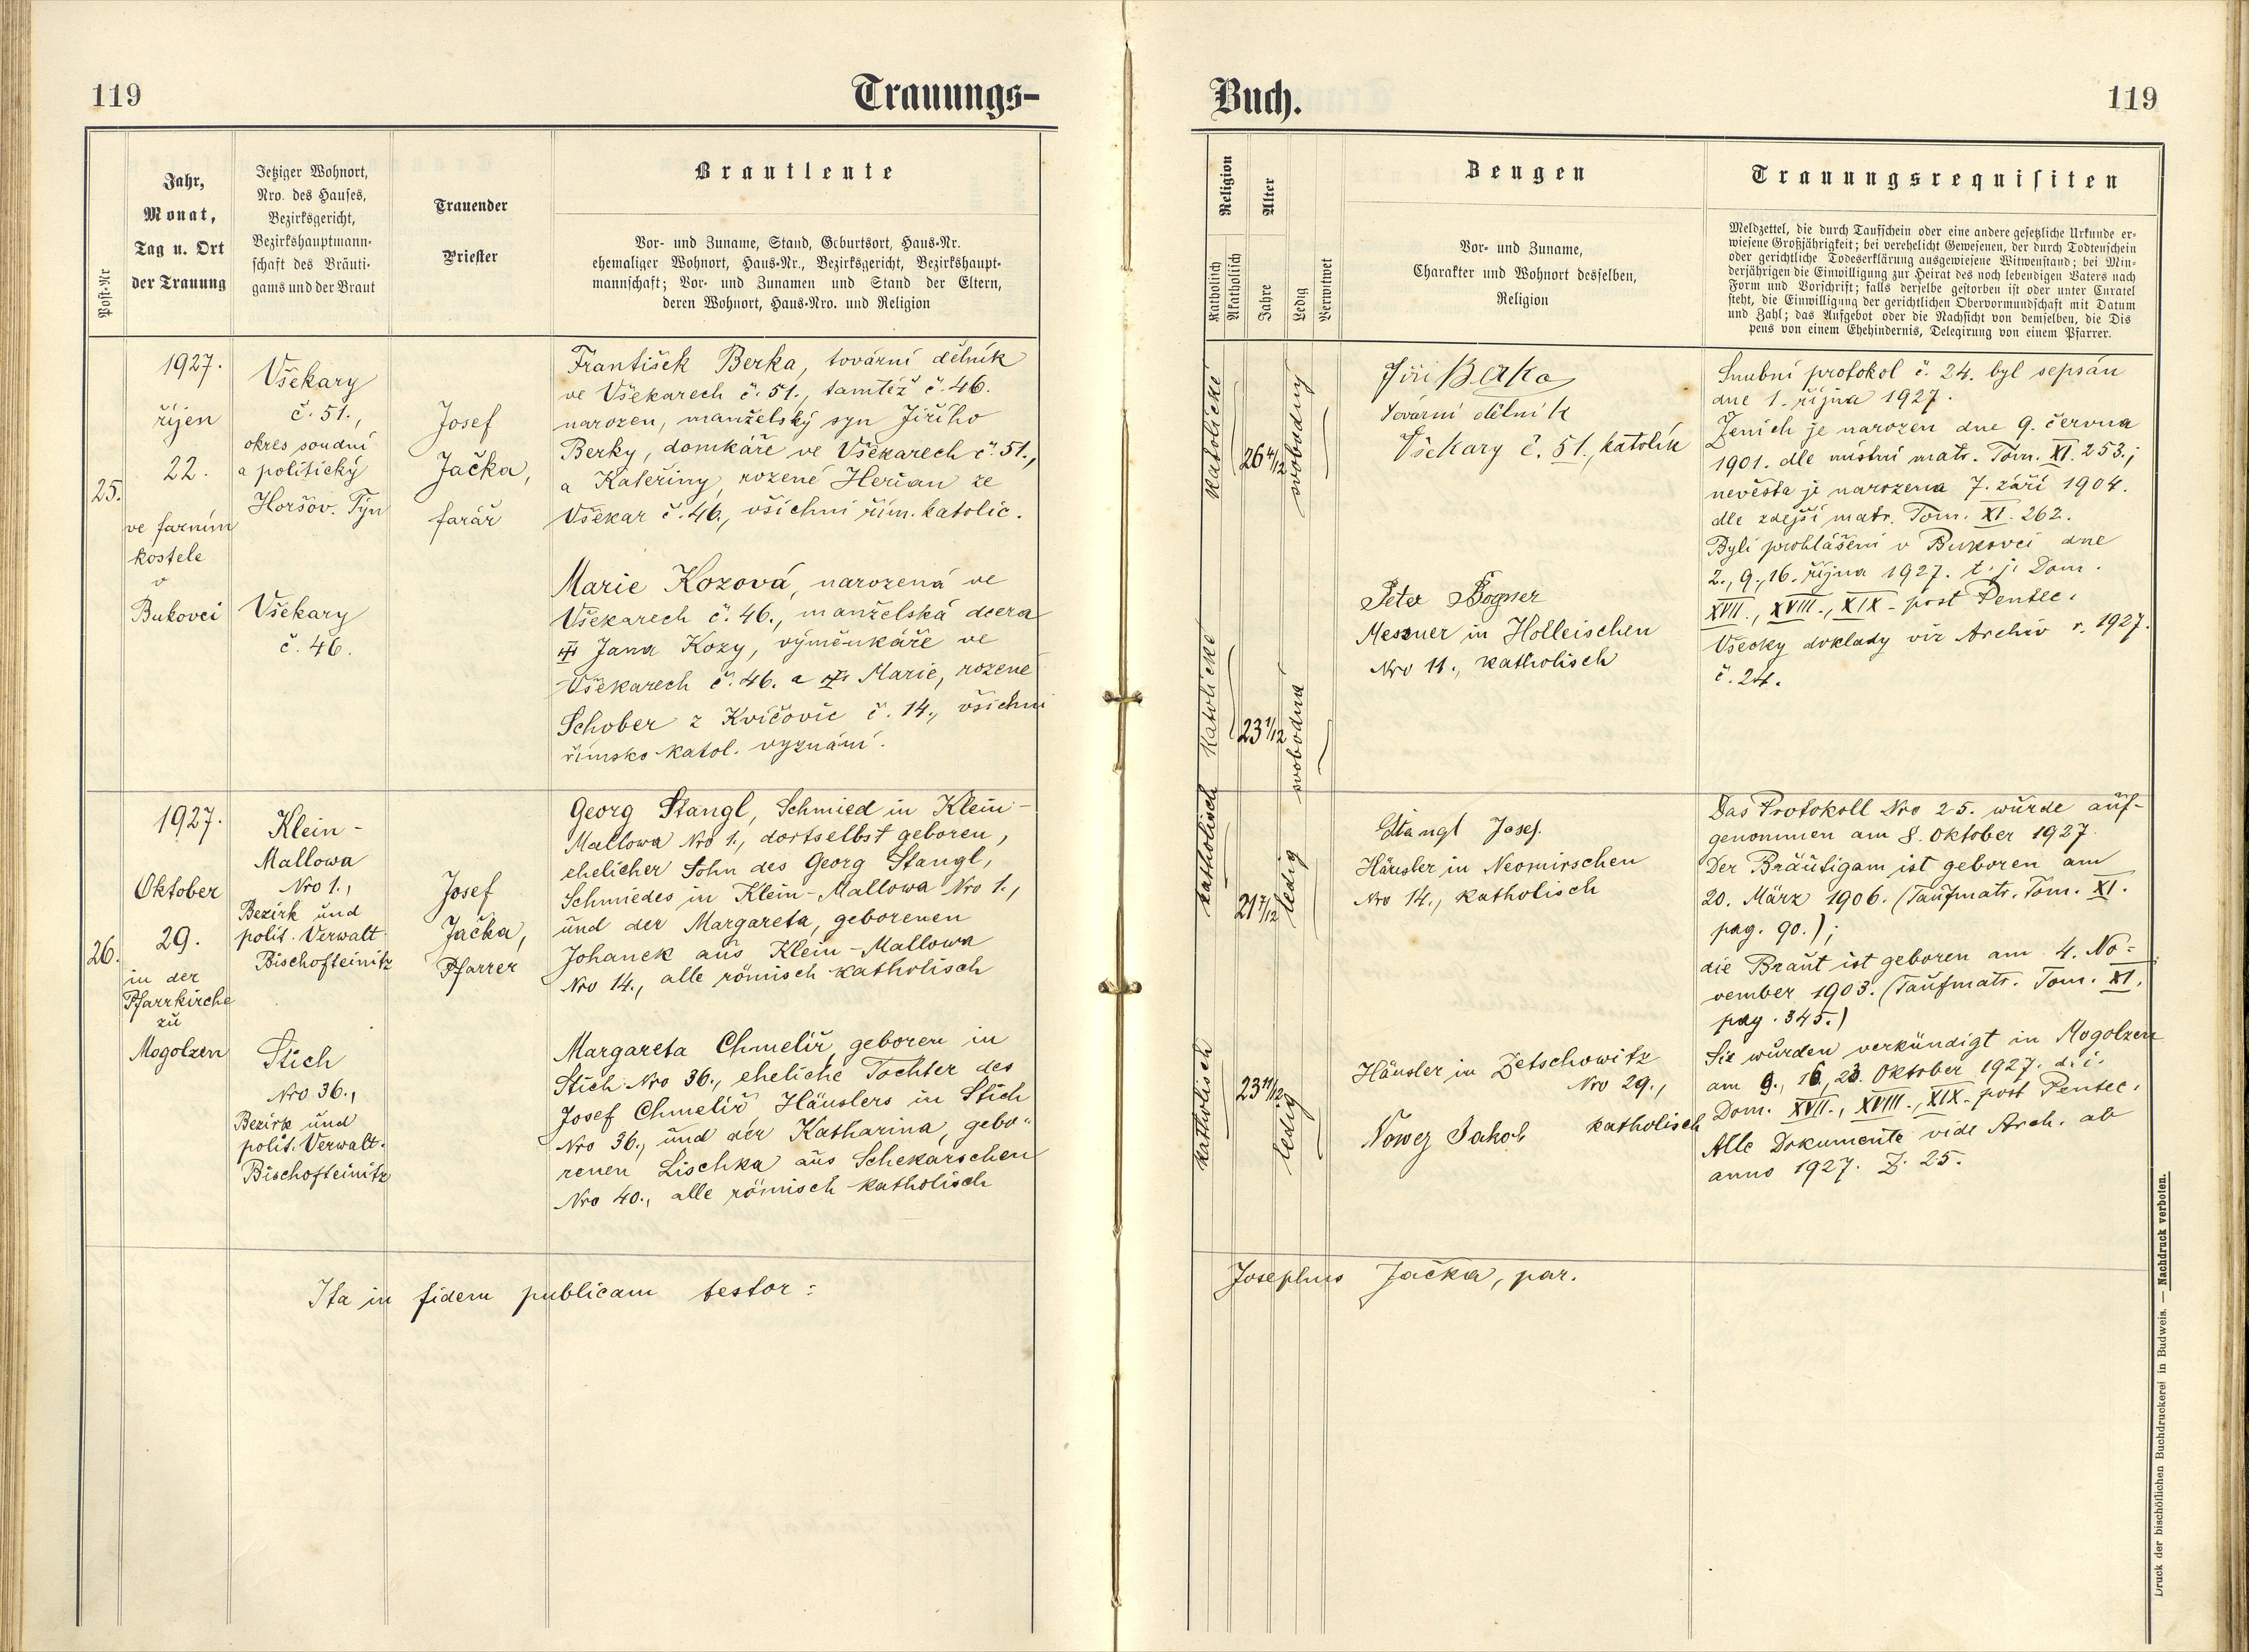 119
Trauungs-
Post-Nr
Jahr,
Monat,
Tag u. Ort
der Trauung
Jetziger Wohnort,
Nro. des Hauses,
Bezirksgericht,
Bezirkshauptmann-
schaft des Bräuti-
gams und der Braut
Trauender
Priester
Brautleute
Vor- und Zuname, Stand, Geburtsort, Haus-Nr.
ehemaliger Wohnort, Haus-Nr., Bezirksgericht, Bezirkshaupt-
mannschaft; Vor- und Zunamen und Stand der Eltern,
deren Wohnort, Haus-Nro. und Religion
25.
1927.
říjen
22.
ve farním
kostele
v
Bukovci
Všekary
č. 51.,
okres soudní
a politický
Horšov. Týn
Všekary
č. 46.
Josef
Jačka,
farář
František Berka, tovární dělník
ve Všekarech č. 51., tamtéž č. 46.
narozen, manželský syn Jiřího
Berky, domkáře ve Všekarech č. 51.,
a Kateřiny, rozené Herian ze
Všekar č. 46., všichni řím. katolic.
Marie Kozová, narozená ve
Všekarech č. 46., manželská dcera
Jana Kozy, výměnkáře ve
Všekarech č. 46. a Marie, rozené
Schober z Kvíčovic č. 14., všichni
římsko-katol. vyznání.
26.
1927.
Oktober
29.
in der
Pfarrkirche
zu
Mogolzen
Klein-
Mallowa
Nro 1.,
Bezirk und
polit. Verwalt.
Bischofteinitz
Stich
Nro 36.,
Bezirk und
polit. Verwalt.
Bischofteinitz
Josef
Jačka,
Pfarrer
Georg Stangl, Schmied in Klein-
Mallowa Nro 1., dortselbst geboren,
ehelicher Sohn des Georg Stangl,
Schmiedes in Klein-Mallowa Nro 1.,
und der Margareta, geborenen
Johanek aus Klein-Mallowa
Nro 14., alle römisch katholisch
Margareta Chmelíř, geboren in
Stich Nro 36., eheliche Tochter des
Josef Chmelíř, Häuslers in Stich
Nro 36., und der Katharina, gebo-
renen Lischka aus Schekarschen
Nro 40., alle römisch-katholisch
Ita in fidem publicam testor:
Buch.
119
Religion
Katholisch
Akatholisch
Alter
Jahre
Ledig
Verwitwet
Zeugen
Vor- und Zuname,
Charakter und Wohnort desselben,
Religion
Trauungsrequisiten
Meldzettel, die durch Taufschein oder eine andere gesetzliche Urkunde er-
wiesene Großjährigkeit; bei verehelicht Gewesenen, der durch Todtenschein
oder gerichtliche Todeserklärung ausgewiesene Witwenstand; bei Min-
derjährigen die Einwilligung zur Heirat des noch lebendigen Vaters nach
Form und Vorschrift; falls derselbe gestorben ist oder unter Curatel
steht, die Einwilligung der gerichtlichen Obervormundschaft mit Datum
und Zahl; das Aufgebot oder die Nachsicht von demselben, die Dis
pens von einem Ehehindernis, Delegirung von einem Pfarrer.
katolické
26 4/12
svobodný
katolické
23 1/12
svobodná
Jiří Berka
Tovární dělník
Všekary č. 51., katolík
Peter Bogner
Messner in Holleischen
Nro 11., katholisch
Snubní protokol č. 24. byl sepsán
dne 1. října 1927.
Ženich je narozen dne 9. června
1901. dle místní matr. Tom. XI. 253.;
nevěsta je narozena 7. září 1904.
dle zdejší matr. Tom. XI. 262.
Byli prohlášeni v Bukovci dne
2., 9., 16. října 1927. t. j. Dom.
XVII., XVIII., XIX. post Pentec.
Všecky doklady viz Archiv r. 1927.
č. 24.
katholisch
21 7/12
ledig
katholisch
23 11/12
ledig
Stangl Josef.
Häusler in Neomirschen
Nro 14., katholisch
Häusler in Zetschowitz
Nro 29.,
Nowey Jakob katholisch
Das Protokoll Nro 25. wurde auf-
genommen am 8. Oktober 1927.
Der Bräutigam ist geboren am
20. März 1906. (Taufmatr. Tom. XI.
pag. 90.);
die Braut ist geboren am 4. No-
vember 1903. (Taufmatr. Tom. XI.
pag. 345.)
Sie wurden verkündigt in Mogolzen
am 9., 16., 23. Oktober 1927. d. i.
Dom. XVII., XVIII., XIX. post Pentec.
Alle Dokumente vide Arch. ab
anno 1927. Z. 25.
Josephus Jačka, par.
Druck der bischöflichen Buchdruckerei in Budweis. — Nachdruck verboten.